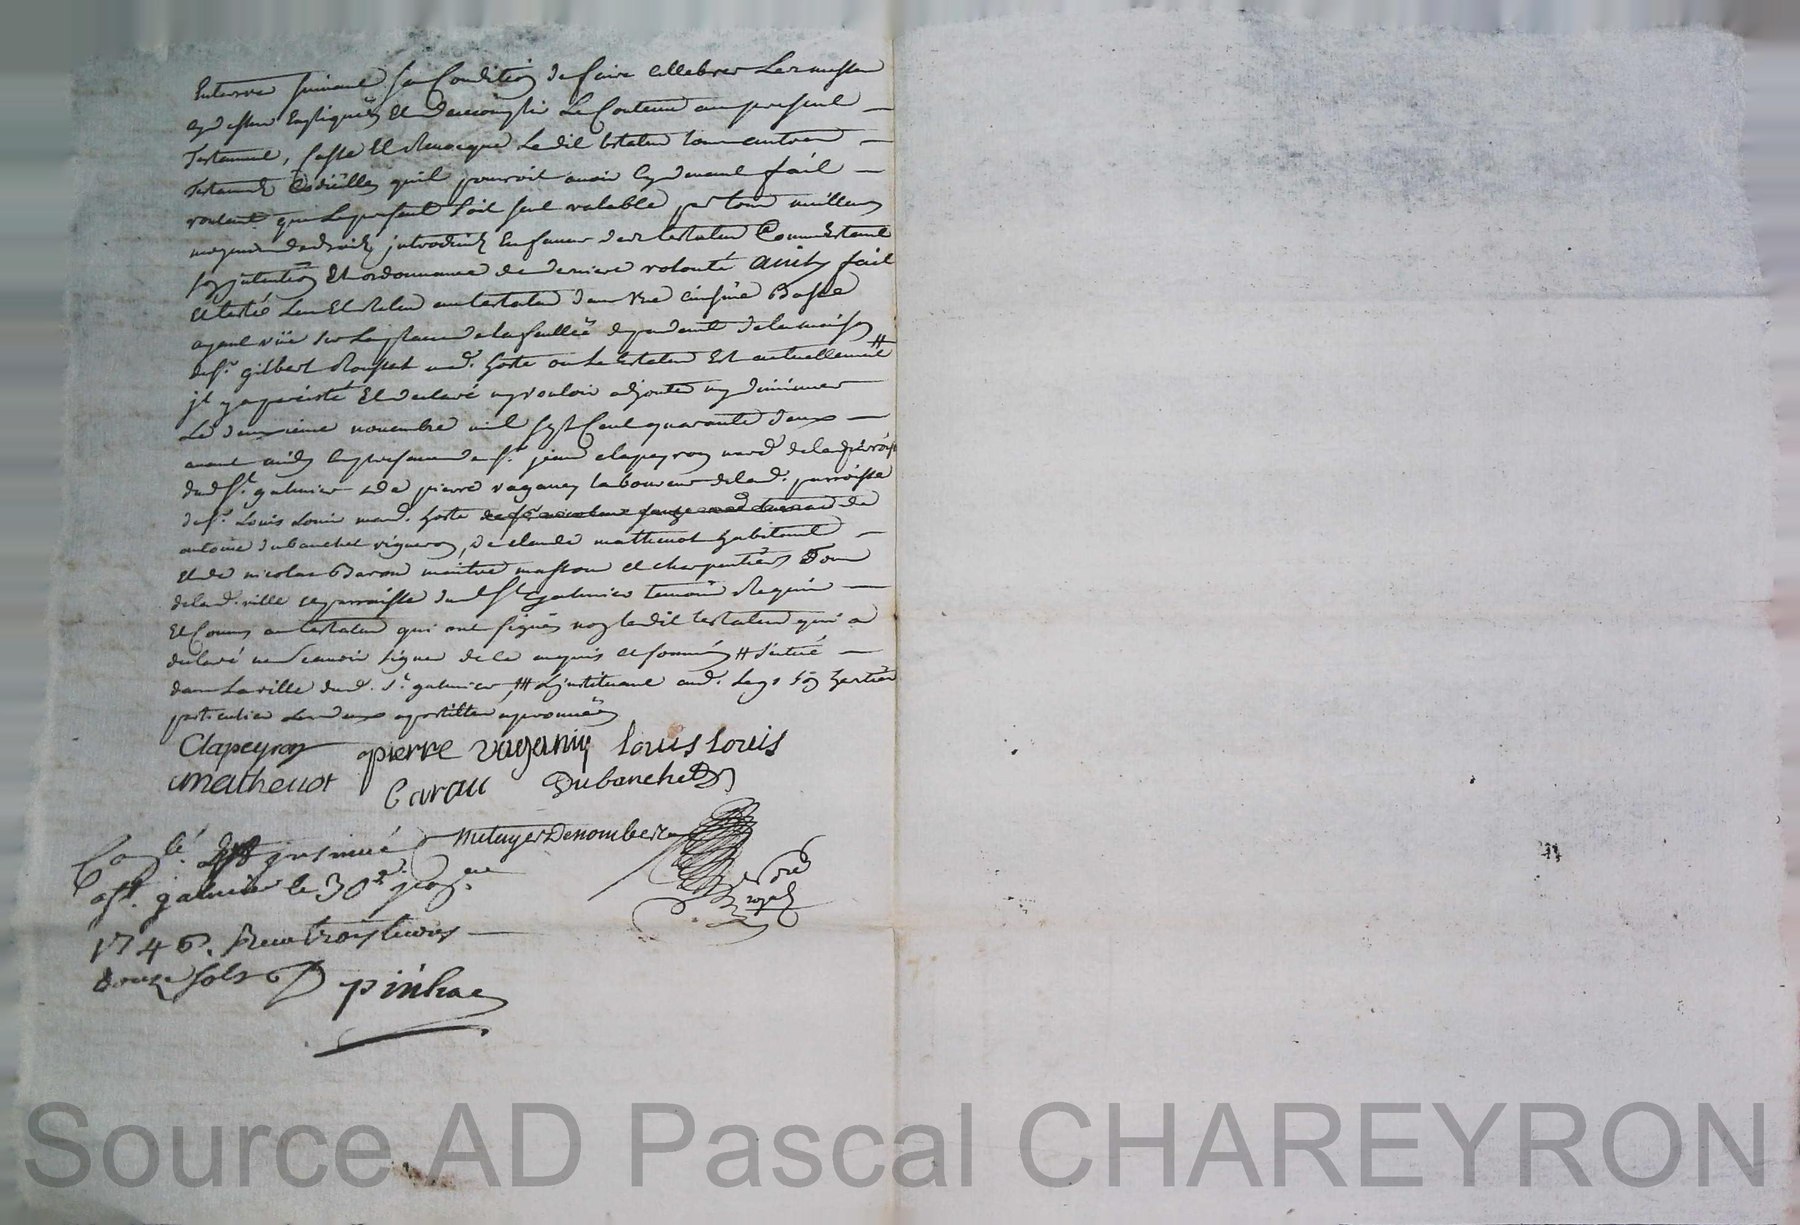 Enterrer suivant sa Condition de faire cellebrer Les messes
cy dessus Expliquées Et daccomplir Le Contenu au present
Testament, Casse Et Revocque Ledit testateur tous autres
Testaments Codicilles quil pourroit avoir cy devant fait
voulant que Le present soit seul valable par tous meilleurs
moyens de droits introduits En faveur des testateurs Comme Estant
son intention Et ordonnance de derniere volonté ainsy fait
dicté Leu Et Releu au testateur dans une cuisine Basse
ayant vüe sur La place de la feullée dependante de la maison
de Sr. gilbert Rousset md. hoste ou Le testateur Est actuellement #
il y a persisté Et declaré ny vouloir adjouter ny diminuer
Le deuxieme novembre mil sept Cent quarante deux
avant midy En presence de Sr. jean clapeyron mard. de la parroisse
dud St. galmier de pierre vaganey laboureur de lad. parroisse
de Sr. Louis Louis mard. hoste de
antoine dubanchet vigneron, de claude mathenot habitant
Et de nicolas Baron maitre masson et charpentier Tous
de lad. ville et parroisse dud St galmier temoins Requis
Et Connus au testateur qui ont signés non ledit testateur qui a
declaré ne scavoir signer de ce enquis et sommé # située
dans La ville dud. St. galmier, ## L'instituant aud. Legs son heritier
particulier Les deux apostilles approuvées
Clapeyron pierre vaganey Louis Louis
mathenot Barou Dubanchet
Metayer Denombret
Con.lé
a St. galmier le 30e
1746. Receu trois livres
douze sols Pinhac
no.re royal
Source AD Pascal CHAREYRON